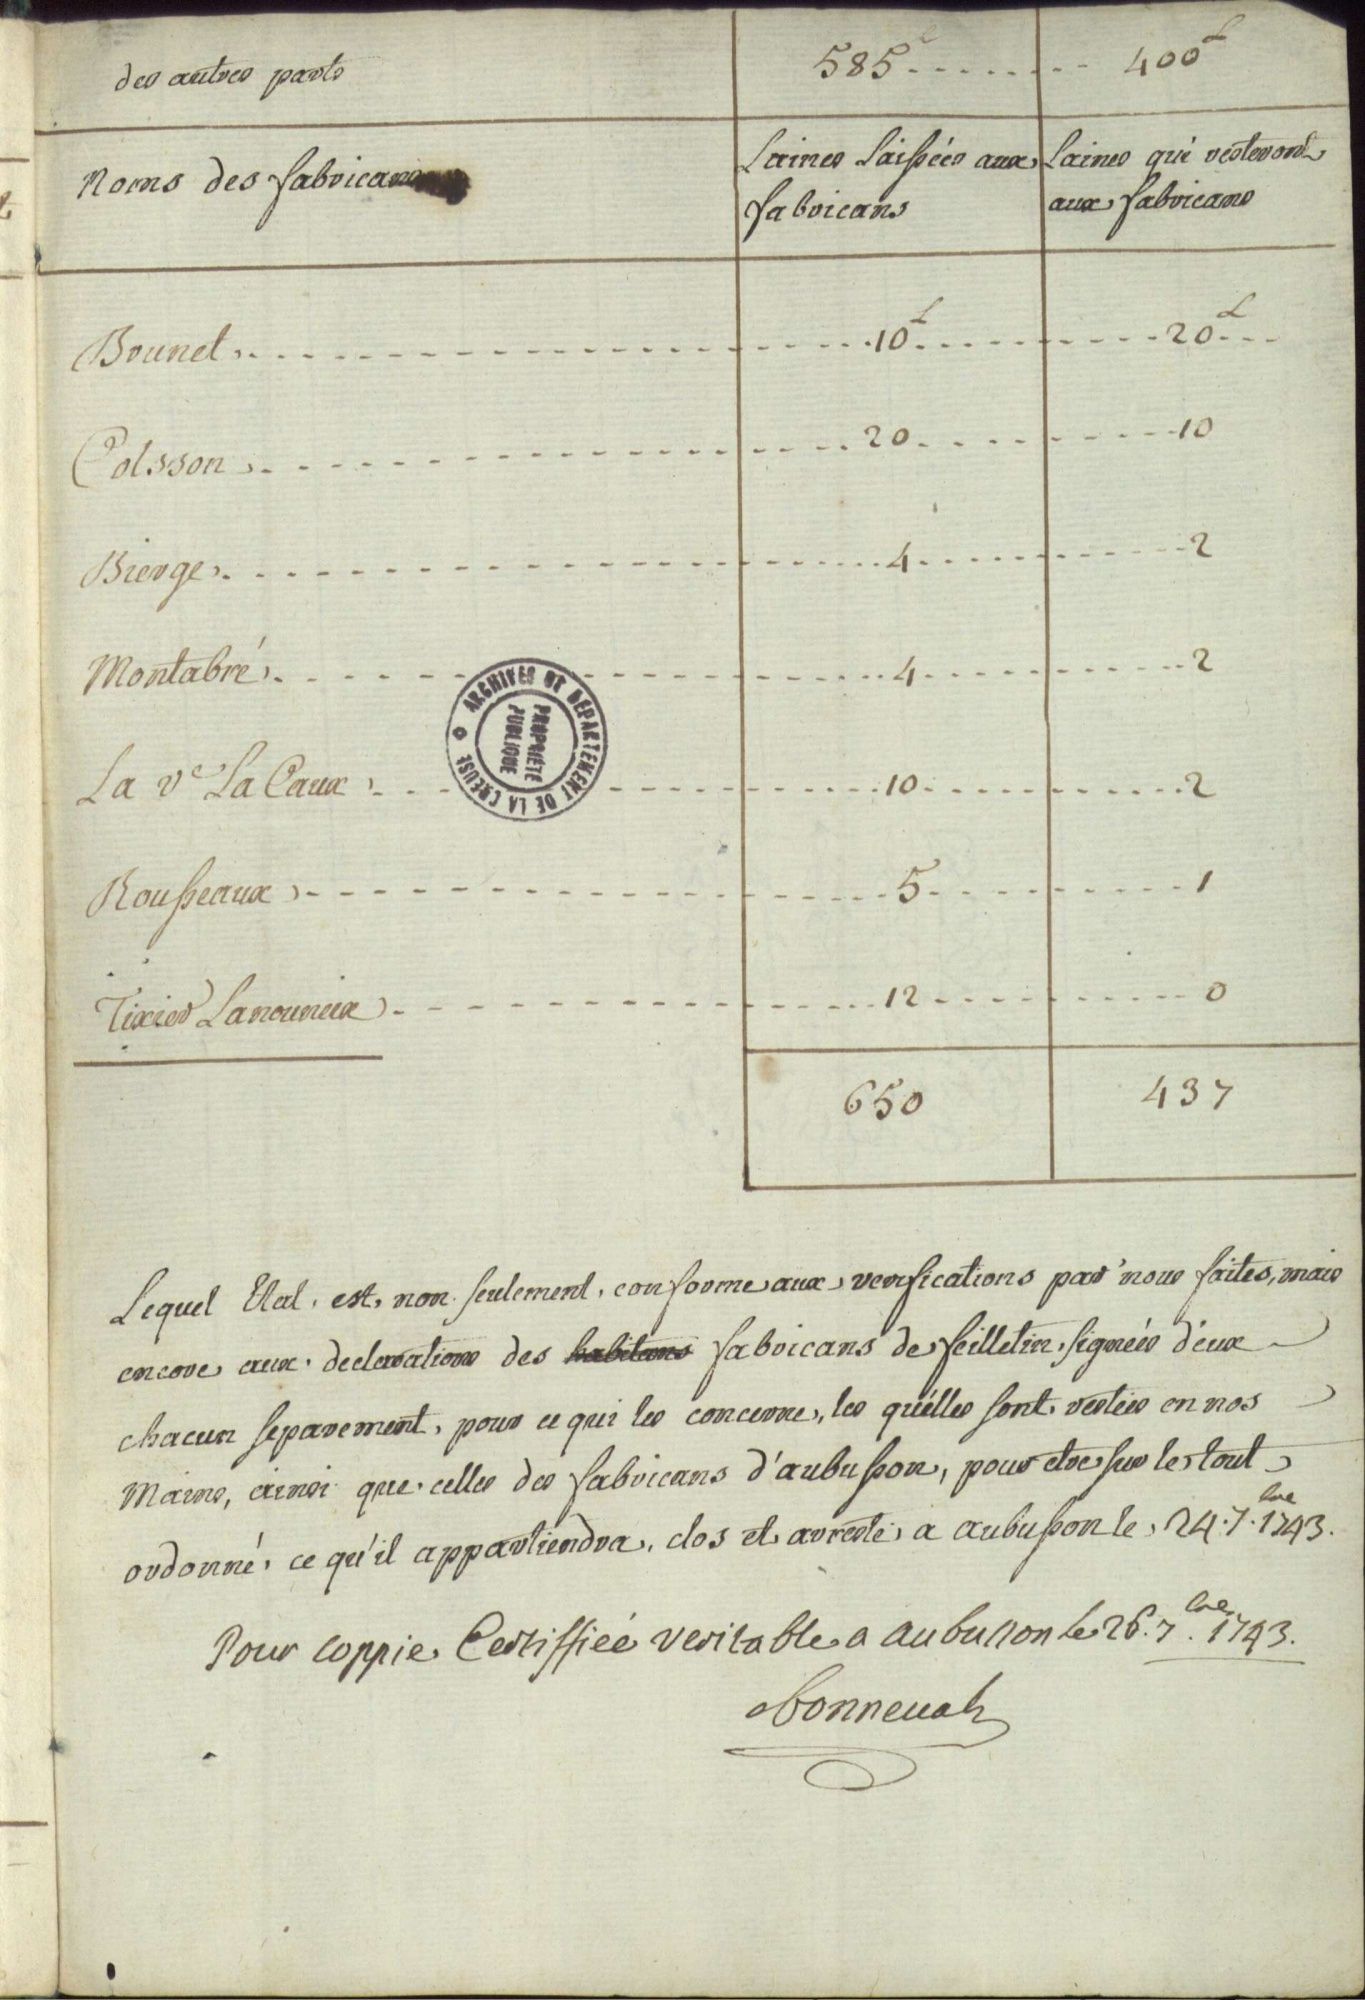 des autres parts 585 400ᴸ
Noms des fabricans
Laines Laissées aux fabricans
Laines qui resteront aux fabricans
Brunet 10ᴸ 20ᴸ
Coisson 20 10
Bierge 4 2
Montabré 4 2
La vᵉ La Caux 10 2
Rousseaux 5 1
Tixier Lanouneix 12 0
650 437
ARCHIVES DU DEPARTEMENT DE LA CREUSE
PROPRIÉTÉ
PUBLIQUE
Lequel Etat, est, non seulement, conforme aux verifications par nous faites, mais
encore aux declarations des habitans fabricans de feilletin, signées d'eux
chacun separement, pour ce qui les concerne, les quelles sont restées en nos
Mains, ainsi que celles des fabricans d'aubusson, pour etre sur le tout
ordonné, ce qu'il appartiendra, clos et arresté, a aubusson le, 24.7.ᵇʳᵉ 1743.
Pour coppie Certiffiée veritable a aubusson le 26.7.ᵇʳᵉ 1743.
bonneval